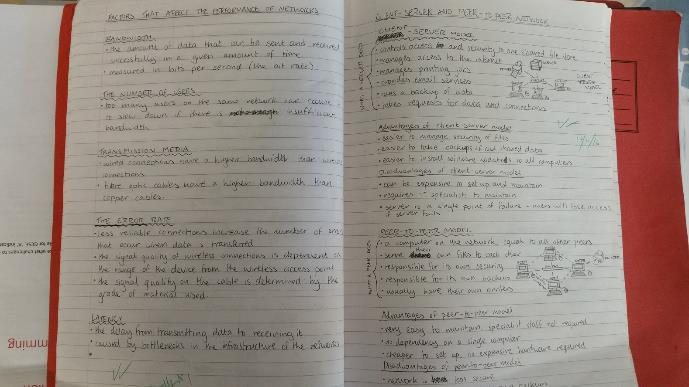 FACTORS THAT AFFECT THE PERFORMANCE OF NETWORKS
BANDWIDTH
• the amount of data that can be sent and received
successfully in a given amount of time.
• measured in bits per second (the bit rate).
THE NUMBER OF USERS
• too many users on the same network can
to slow down if there is insufficient
bandwidth.
TRANSMISSION MEDIA
• wired connections have a higher bandwidth than
connections.
• fibre optic cables have a higher bandwidth than
copper cables.
THE ERROR RATE
• less reliable connections increase the number of
that occur when data is transferred
• the signal quality of wireless connections is dependent on
the range of the device from the wireless access point
• the signal quality on the cable is determined by the
grade of material used.
LATENCY
• the delay from transmitting data to receiving it
• caused by bottlenecks in the infrastructure of the networks
CLIENT-SERVER AND PEER-TO-PEER NETWORK
CLIENT-SERVER MODEL
• controls access and security to one shared file store
• manages access to the internet
• manages printing jobs
• provides email services
• runs a backup of data
• takes requests for data and connections
CLIENT
SERVER
MODEL
Advantages of client server model
• easier to manage security of files
• easier to take backups of all shared data
• easier to install software updates to all computers
Disadvantages of client server model
• can be expensive to set up and maintain
• requires specialists to maintain
• server is a single point of failure - users will lose access
if server fails
PEER-TO-PEER MODEL
• a computer on the network equal to all other peers
• serve their own files to each other
• responsible for its own security
• responsible for its own backup
• usually have their own printers
Advantages of peer-to-peer model
• very easy to maintain, specialist staff not required
• no dependency on a single computer
• cheaper to set up, no expensive hardware required
Disadvantages of peer-to-peer model
• network is less secure